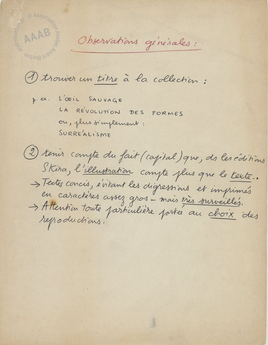 AAAB
Observations générales :
1) trouver un titre à la collection :
p. ex. L'OEIL SAUVAGE
LA REVOLUTION DES FORMES
ou, plus simplement :
SURREALISME
2) tenir compte du fait (capital) que, ds les éditions
Skira, l'illustration compte plus que le texte.
→ Textes concis, évitant les digressions et imprimés
en caractères assez gros – mais très surveillés.
→ Attention toute particulière portée au choix des
reproductions.